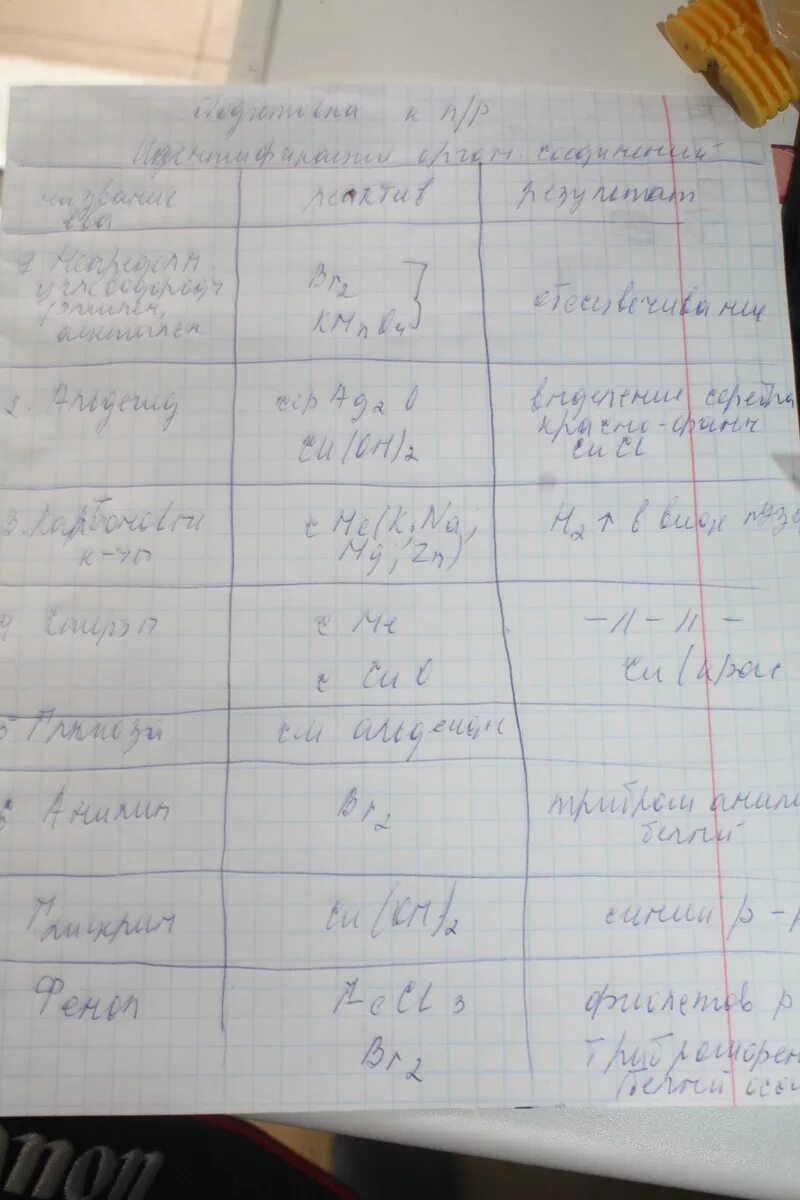 Подготовка к п/р
Идентификация орган. соединений
название реактив результат
в-ва
1 Непредельн
углеводороды
(этилен,
ацетилен
Br2
KMnO4
обесцвечивание
2. Альдегид
с Ag2O
Cu(OH)2
выделение серебра
красно-оранж
CuCl
3. Карбоновые
к-ты
с Me(K; Na;
Mg; Zn)
H2↑ в виде пузы
4 Спирты
с Me
с CuO
-//-//-
Cu (крас
5 Глюкоза см альдегид
6 Анилин Br2
триброманили
белый
Глицерин Cu(OH)2 синий р-р
Фенол
FeCl3
Br2
фиолетов р
трибромфен
белый оса
non